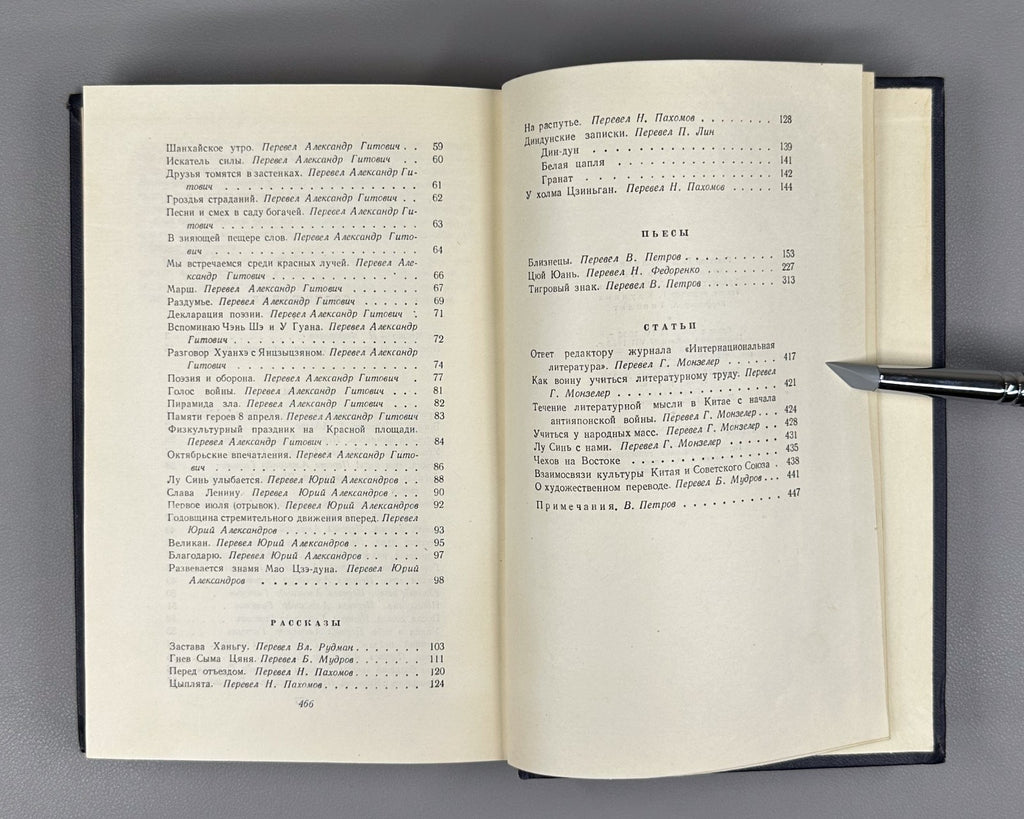 Шанхайское утро. Перевел Александр Гитович . . 59
Искатель силы. Перевел Александр Гитович . . 60
Друзья томятся в застенках. Перевел Александр Ги-
тович . . . . . . . . . . . . . . . . . . 61
Гроздья страданий. Перевел Александр Гитович . . 62
Песни и смех в саду богачей. Перевел Александр Ги-
тович . . . . . . . . . . . . . . . . . . 63
В зияющей пещере слов. Перевел Александр Гито-
вич . . . . . . . . . . . . . . . . . . . 64
Мы встречаемся среди красных лучей. Перевел Але-
ксандр Гитович . . . . . . . . . . . . . 66
Марш. Перевел Александр Гитович . . . . . . 67
Раздумье. Перевел Александр Гитович . . . . . 69
Декларация поэзии. Перевел Александр Гитович . 71
Вспоминаю Чэнь Шэ и У Гуана. Перевел Александр
Гитович . . . . . . . . . . . . . . . . . 72
Разговор Хуанхэ с Янцзыцзяном. Перевел Александр
Гитович . . . . . . . . . . . . . . . . . 74
Поэзия и оборона. Перевел Александр Гитович . 77
Голос войны. Перевел Александр Гитович . . . . 81
Пирамида зла. Перевел Александр Гитович . . . 82
Памяти героев 8 апреля. Перевел Александр Гитович 83
Физкультурный праздник на Красной площади.
Перевел Александр Гитович . . . . . . . . 84
Октябрьские впечатления. Перевел Александр Гито-
вич . . . . . . . . . . . . . . . . . . . 86
Лу Синь улыбается. Перевел Юрий Александров . . 88
Слава Ленину. Перевел Юрий Александров . . . 90
Первое июля (отрывок). Перевел Юрий Александров 92
Годовщина стремительного движения вперед. Перевел
Юрий Александров . . . . . . . . . . . . 93
Великан. Перевел Юрий Александров . . . . . . 95
Благодарю. Перевел Юрий Александров . . . . . 97
Развевается знамя Мао Цзэ-дуна. Перевел Юрий
Александров . . . . . . . . . . . . . . 98
РАССКАЗЫ
Застава Ханьгу. Перевел Вл. Рудман . . . . . . 103
Гнев Сыма Цяня. Перевел Б. Мудров . . . . . . 111
Перед отъездом. Перевел Н. Пахомов . . . . . . 120
Цыплята. Перевел Н. Пахомов . . . . . . . . . 124
466
На распутье. Перевел Н. Пахомов . . . . . . . . 128
Диндунские записки. Перевел П. Лин
Дин-дун . . . . . . . . . . . . . . . 139
Белая цапля . . . . . . . . . . . . . 141
Гранат . . . . . . . . . . . . . . . . 142
У холма Цзиньган. Перевел Н. Пахомов . . . . . 144
ПЬЕСЫ
Близнецы. Перевел В. Петров . . . . . . . . . . 153
Цюй Юань. Перевел Н. Федоренко . . . . . . . . 227
Тигровый знак. Перевел В. Петров . . . . . . . . 313
СТАТЬИ
Ответ редактору журнала «Интернациональная
литература». Перевел Г. Монзелер . . . . . . 417
Как воину учиться литературному труду. Перевел
Г. Монзелер . . . . . . . . . . . . . . . 421
Течение литературной мысли в Китае с начала
антияпонской войны. Перевел Г. Монзелер . . . 424
Учиться у народных масс. Перевел Г. Монзелер . . 428
Лу Синь с нами. Перевел Г. Монзелер . . . . . . 431
Чехов на Востоке . . . . . . . . . . . . . . 435
Взаимосвязи культуры Китая и Советского Союза . 438
О художественном переводе. Перевел Б. Мудров . . . 441
Примечания, В. Петров . . . . . . . . . . . 447